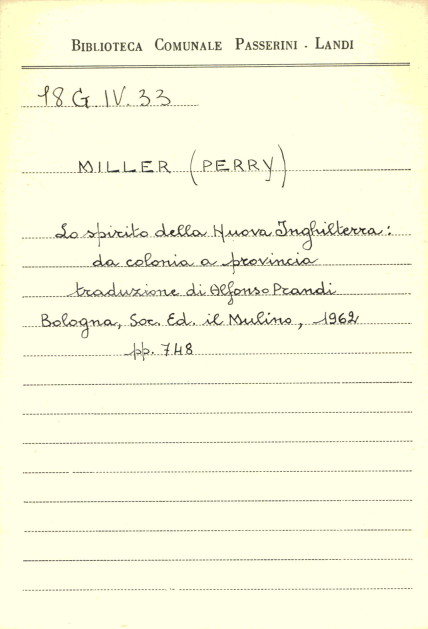 BIBLIOTECA COMUNALE PASSERINI - LANDI
18 G. IV. 33
MILLER (PERRY)
Lo spirito della Nuova Inghilterra:
da colonia a provincia
traduzione di Alfonso Prandi
Bologna, Soc. Ed. il Mulino, 1962
pp. 748